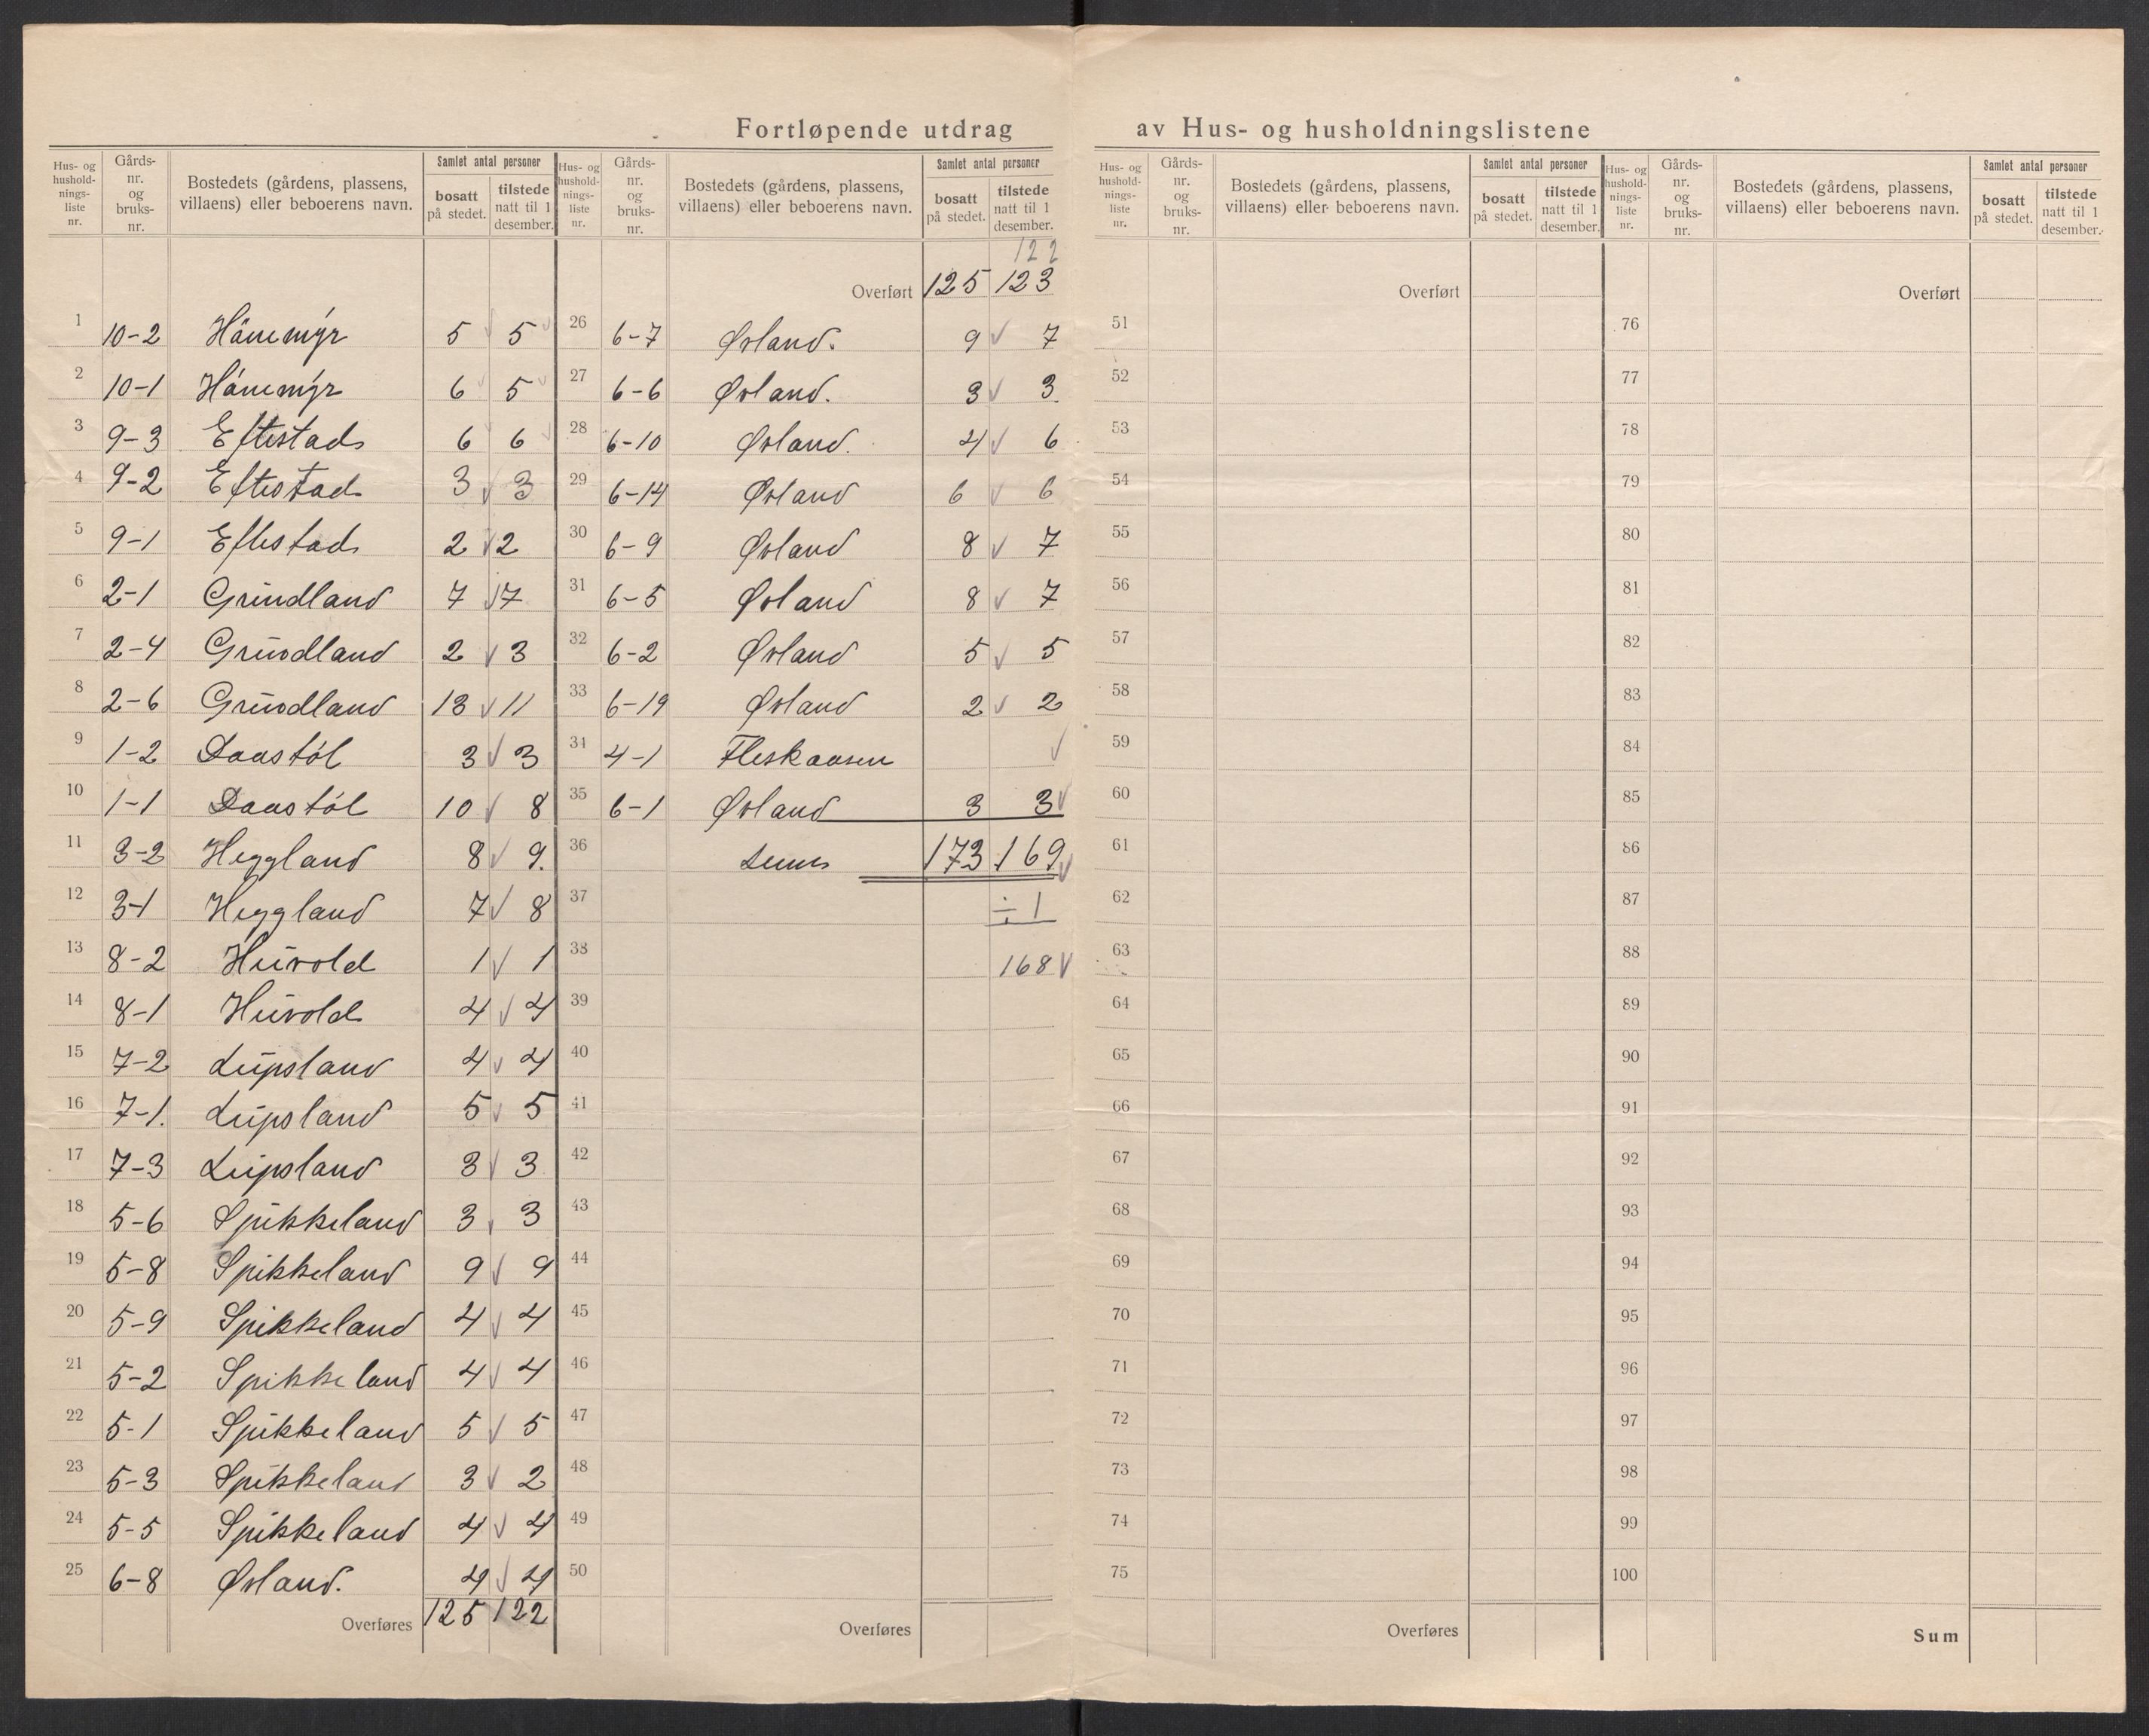 Fortløpende utdrag av Hus- og husholdningslistene
Hus- og husholdnings- liste nr. | Gårds- nr. og bruks- nr. | Bostedets (gårdens, plassens, villaens) eller beboerens navn. | Samlet antal personer | bosatt på stedet. | tilstede natt til 1 desember.
1 10-2 Hånemyr 5 5
2 10-1 Hånemyr 6 5
3 9-3 Eftestad 6 6
4 9-2 Eftestad 3 3
5 9-1 Eftestad 2 2
6 2-1 Grindland 7 7
7 2-4 Grindland 2 3
8 2-6 Grindland 13 11
9 1-2 Daastøl 3 3
10 1-1 Daastøl 10 8
11 3-2 Heggland 8 9.
12 3-1 Heggland 7 8
13 8-2 Huvold 1 1
14 8-1 Huvold 4 4
15 7-2 Lupsland 4 4
16 7-1. Lupsland 5 5
17 7-3 Lupsland 3 3
18 5-6 Spikkeland 3 3
19 5-8 Spikkeland 9 9
20 5-9 Spikkeland 4 4
21 5-2 Spikkeland 4 4
22 5-1 Spikkeland 5 5
23 5-3 Spikkeland 3 2
24 5-5 Spikkeland 4 4
25 6-8 Øvland. 4 4
Overføres 125 122
Hus- og husholdnings- liste nr. | Gårds- nr. og bruks- nr. | Bostedets (gårdens, plassens, villaens) eller beboerens navn. | Samlet antal personer | bosatt på stedet. | tilstede natt til 1 desember.
122
Overført 125 123
26 6-7 Øvland. 9 7
27 6-6 Øvland. 3 3.
28 6-10 Øvland. 4 6
29 6-14 Øvland 6 6
30 6-9 Øvland 8 7
31 6-5 Øvland 8 7
32 6-2 Øvland 5 5
33 6-19 Øvland 2 2
34 4-1 Fleskaasen
35 6-1 Øvland 3 3
36 Sum 173 169
37 ÷1
38 168
39
40
41
42
43
44
45
46
47
48
49
50
Overføres
Hus- og husholdnings- liste nr. | Gårds- nr. og bruks- nr. | Bostedets (gårdens, plassens, villaens) eller beboerens navn. | Samlet antal personer | bosatt på stedet. | tilstede natt til 1 desember.
Overført
51
52
53
54
55
56
57
58
59
60
61
62
63
64
65
66
67
68
69
70
71
72
73
74
75
Overføres
Hus- og husholdnings- liste nr. | Gårds- nr. og bruks- nr. | Bostedets (gårdens, plassens, villaens) eller beboerens navn. | Samlet antal personer | bosatt på stedet. | tilstede natt til 1 desember.
Overført
76
77
78
79
80
81
82
83
84
85
86
87
88
89
90
91
92
93
94
95
96
97
98
99
100
Sum